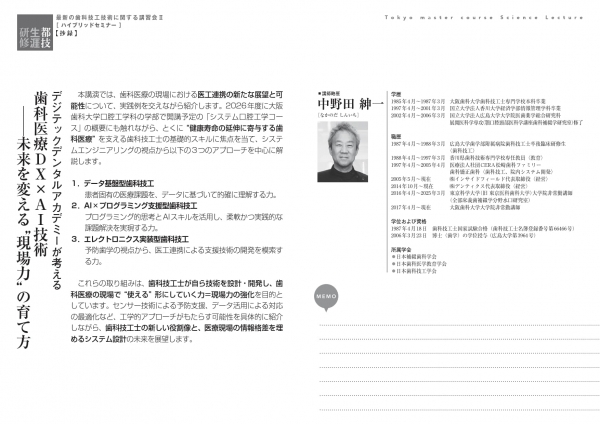 都技
生涯
研修
最新の歯科技工技術に関する講習会Ⅱ
[ ハイブリッドセミナー ]
【抄録】
デジテックデンタルアカデミーが考える
歯科医療DX×AI技術
――未来を変える“現場力”の育て方
本講演では、歯科医療の現場における医工連携の新たな展望と可
能性について、実践例を交えながら紹介します。2026年度に大阪
歯科大学口腔工学科の学部で開講予定の「システム口腔工学コー
ス」の概要にも触れながら、とくに“健康寿命の延伸に寄与する歯
科医療”を支える歯科技工士の基礎的スキルに焦点を当て、システ
ムエンジニアリングの視点から以下の3つのアプローチを中心に解
説します。
1．データ基盤型歯科技工
患者固有の医療課題を、データに基づいて的確に理解する力。
2．AI×プログラミング支援型歯科技工
プログラミング的思考とAIスキルを活用し、柔軟かつ実践的な
課題解決を実現する力。
3．エレクトロニクス実装型歯科技工
予防歯学の視点から、医工連携による支援技術の開発を模索す
る力。
これらの取り組みは、歯科技工士が自ら技術を設計・開発し、歯
科医療の現場で“使える”形にしていく力＝現場力の強化を目的と
しています。センサー技術による予防支援、データ活用による対応
の最適化など、工学的アプローチがもたらす可能性を具体的に紹介
しながら、歯科技工士の新しい役割像と、医療現場の情報格差を埋
めるシステム設計の未来を展望します。
Tokyo master course Science Lecture
●講師略歴
中野田 紳一
[なかのだ しんいち]
学歴
1985年4月～1987年3月 大阪歯科大学歯科技工士専門学校本科卒業
1987年4月～1991年3月 国立大学法人香川大学経済学部情報管理学科卒業
2002年4月～2006年3月 国立大学法人広島大学大学院医歯薬学総合研究科
職歴
1987年4月～1988年3月 広島大学歯学部附属病院歯科技工士卒後臨床研修生
(歯科技工)
1988年4月～1997年3月 香川県歯科技術専門学校専任教員（教育）
1997年4月～2005年4月 医療法人社団CERA松崎歯科ファミリー
歯科矯正歯科（歯科技工、院内システム開発）
2005年5月～現在 ㈱インサイドフィールド代表取締役（経営）
2014年10月～現在 ㈱デンタディスR代表取締役（経営）
2017年4月～現在 大阪歯科大学大学院非常勤講師
学位および資格
1987年4月18日 歯科技工士国家試験合格
2006年3月23日 博士（歯学）の学位授与
所属学会
＊日本補綴歯科学会
＊日本歯科医学教育学会
＊日本歯科技工学会
MEMO